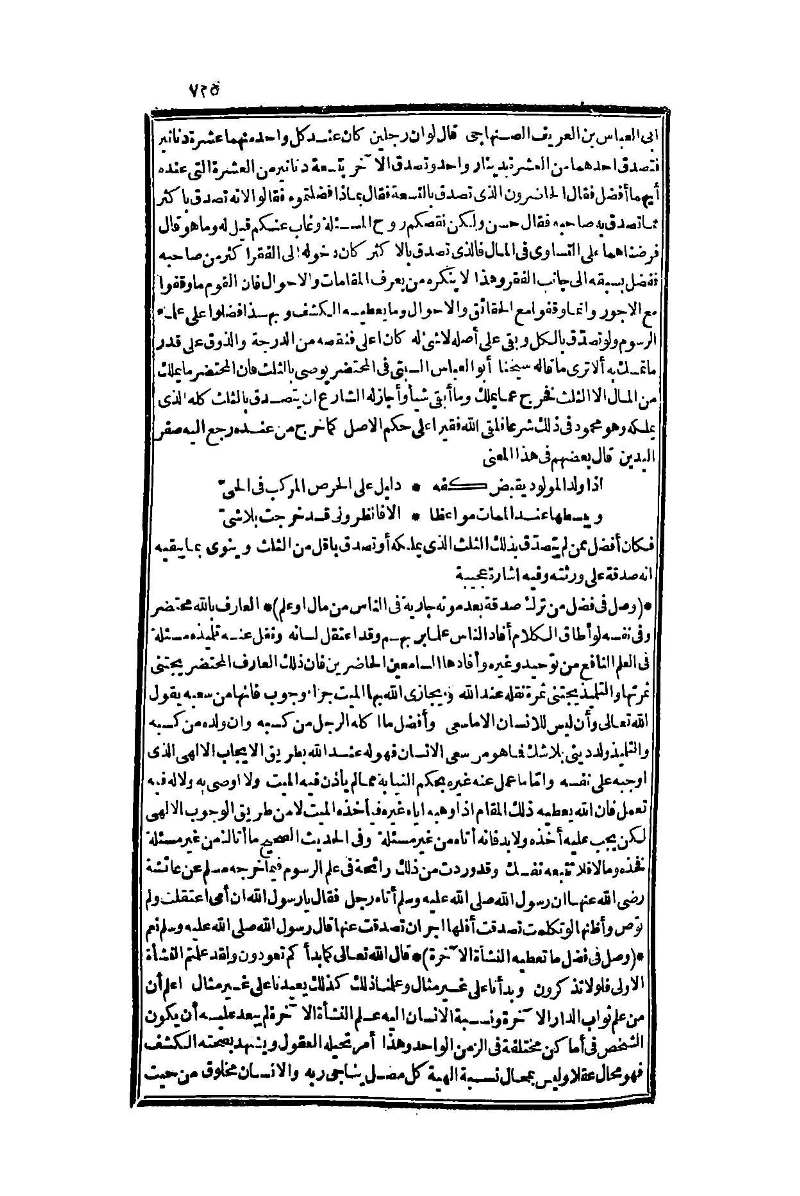 ٧٢٥
ابى العباس بن العريف الصنهاجى قال لوان رجلين كان عند كل واحد منهما عشرة دنانير
فتصدق احدهما من العشرة بدينار واحد وتصدق الآخر بتسعة دنانير من العشرة التى عنده
أيهما أفضل فقال الحاضرون الذى تصدق بالتسعة فقال بماذا فضلتموه فقالوا لانه تصدق باكثر
مما تصدق به صاحبه فقال حسن ولكن نقصكم روح المسئلة وغاب عنكم قيل له وما هو قال
فرضناهما على التساوى فى المال فالذى تصدق بالاكثر كان دخوله الى الفقر اكثر من صاحبه
ففضل بسبقه الى جانب الفقر وهذا لا ينكره من يعرف المقامات والاحوال فان القوم ما وقفوا
مع الاجور وانما وقفوا مع الحقائق والاحوال وما يعطيه الكشف وبهذا فضلوا على علماء
الرسوم ولو تصدق بالكل وبقى على أصله لاشئ له كان اعلى فنقصه من الدرجة والذوق على قدر
ما تمسك به ألا ترى ما قاله شيخنا أبو العباس السبتى فى المحتضر يوصى بالثلث فان المحتضر ما يملك
من المال الا الثلث فخرج عما يملك وما أبقى شيأ وأجاز له الشارع ان يتصدق بالثلث كله الذى
يملكه وهو محمود فى ذلك شرعا فلقى الله فقيرا على حكم الاصل كما خرج من عنده رجع اليه صفر
اليدين قال بعضهم فى هذا المعنى
اذا ولد المولود يقبض كفه * دليل على الحرص المركب فى الحىّ
ويبسطها عند الممات مواعظا * الا فانظرونى قد خرجت بلاشئ
فكان أفضل ممن لم يتصدق بذلك الثلث الذى يملكه أو تصدق باقل من الثلث وينوى بما يبقيه
انه صدقة على ورثته وفيه اشارة عجيبة
*(وصل فى فضل من ترك صدقة بعد موته جارية فى الناس من مال او علم)* العارف بالله محتضر
وفى نفسه لو أطاق الكلام أفاد الناس علما بربهم وقد اعتقل لسانه ونقل عنه تلميذه مسئلة
فى العلم النافع من توحيد وغيره وأفادها السامعين الحاضرين فان ذلك العارف المحتضر يجتنى
ثمرتها والتلميذ يجتنى ثمرة نقله عند الله ويجازى الله بها الميت جزاء وجوب فانها من سعيه يقول
الله تعالى وأن ليس للانسان الا ما سعى وأفضل ما اكله الرجل من كسبه وان ولده من كسبه
والتلميذ ولد دينى بلا شك فما هو من سعى الانسان فهو له عند الله بطريق الايجاب الالهى الذى
اوجبه على نفسه واما ما عمل عنه غيره بحكم النيابة مما لم يأذن فيه الميت ولا اوصى به ولا له فيه
تعمل فان الله يعطيه ذلك المقام اذا وهبه اياه غيره فيأخذه الميت لا من طريق الوجوب الالهى
لكن يجب عليه أخذه ولا بد فانه أتاه من غير مسئلة وفى الحديث الصحيح ما أتاك من غير مسئلة
فخذه وما لا فلا تتبعه نفسك وقد وردت من ذلك رائحة فى علم الرسوم فيما خرجه مسلم عن عائشة
رضى الله عنها ان رسول الله صلى الله عليه وسلم أتاه رجل فقال يا رسول الله ان أمى اعتقلت ولم
توص وأظنها لو تكلمت تصدقت أفلها اجر ان تصدقت عنها قال رسول الله صلى الله عليه وسلم نعم
*(وصل فى فضل ما تعطيه النشأة الآخرة)* قال الله تعالى كما بدأكم تعودون ولقد علمتم النشأة
الاولى فلولا تذكرون وبدأنا على غير مثال وعلمنا ذلك كذلك يعيدنا على غير مثال اعلم أن
من علم ثواب الدار الآخرة ونسبة الانسان اليه علم النشأة الآخرة لم يبعد عليه أن يكون
الشخص فى أماكن مختلفة فى الزمن الواحد وهذا أمر تحيله العقول ويشهد بصحته الكشف
فهو محال عقلا وليس بمحال نسبة الهية كل مصل يناجى ربه والانسان مخلوق من حيث